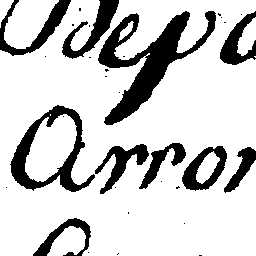 Depa
Arron